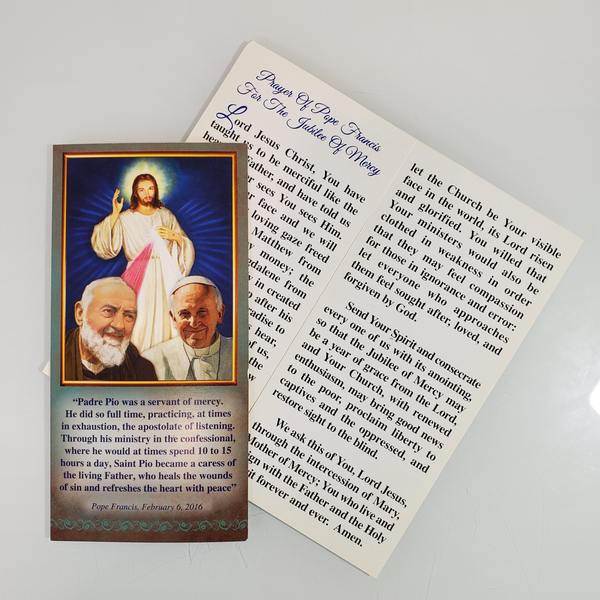 “Padre Pio was a servant of mercy.
He did so full time, practicing, at times
in exhaustion, the apostolate of listening.
Through his ministry in the confessional,
where he would at times spend 10 to 15
hours a day, Saint Pio became a caress of
the living Father, who heals the wounds
of sin and refreshes the heart with peace”
Pope Francis, February 6, 2016
Prayer Of Pope Francis
For The Jubilee Of Mercy
Lord Jesus Christ, You have
taught us to be merciful like the
Father, and have told us
sees You sees Him.
face and we will
loving gaze freed
Matthew from
money; the
in created
after his
hear,
of us,
the
let the Church be Your visible
face in the world, its Lord risen
and glorified. You willed that
Your ministers would also be
clothed in weakness in order
that they may feel compassion
for those in ignorance and error:
let everyone who approaches
them feel sought after, loved, and
forgiven by God.
Send Your Spirit and consecrate
every one of us with its anointing,
so that the Jubilee of Mercy may
be a year of grace from the Lord,
and Your Church, with renewed
enthusiasm, may bring good news
to the poor, proclaim liberty to
captives and the oppressed, and
restore sight to the blind.
We ask this of You, Lord Jesus,
through the intercession of Mary,
Mother of Mercy; You who live and
with the Father and the Holy
forever and ever. Amen.